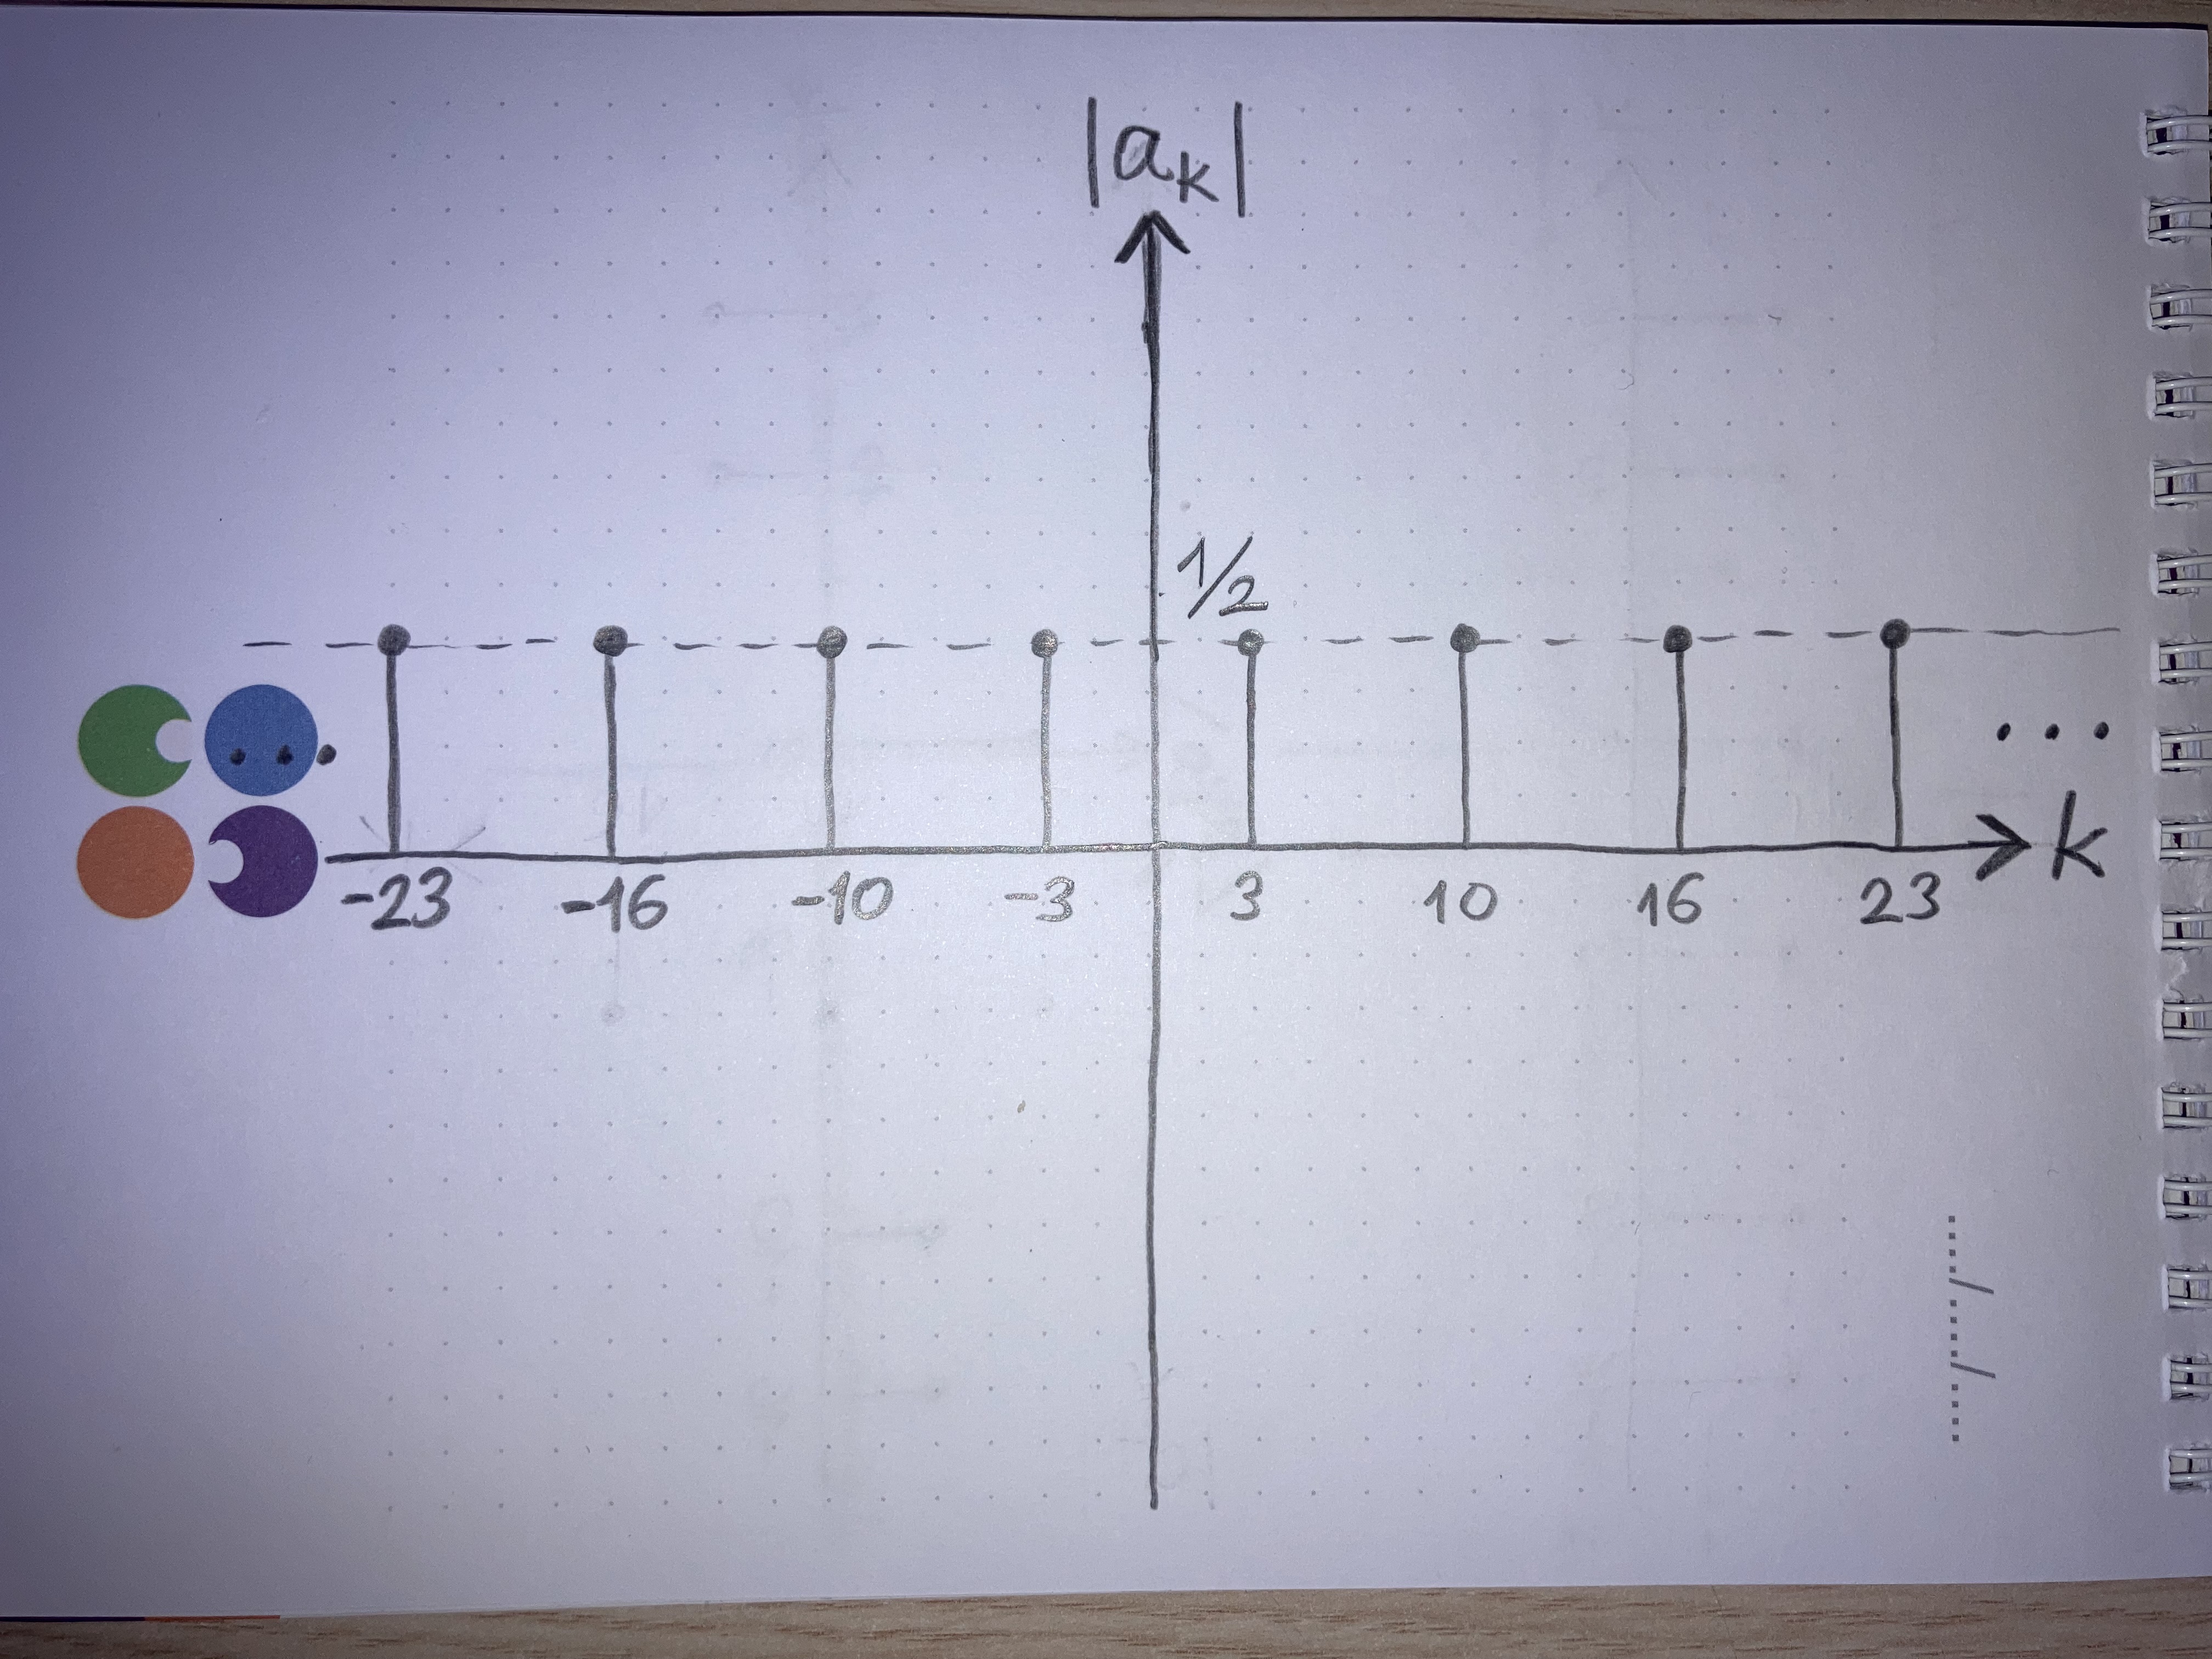 |aₖ|
1/2
... ...
k
-23 -16 -10 -3 3 10 16 23
....../....../......